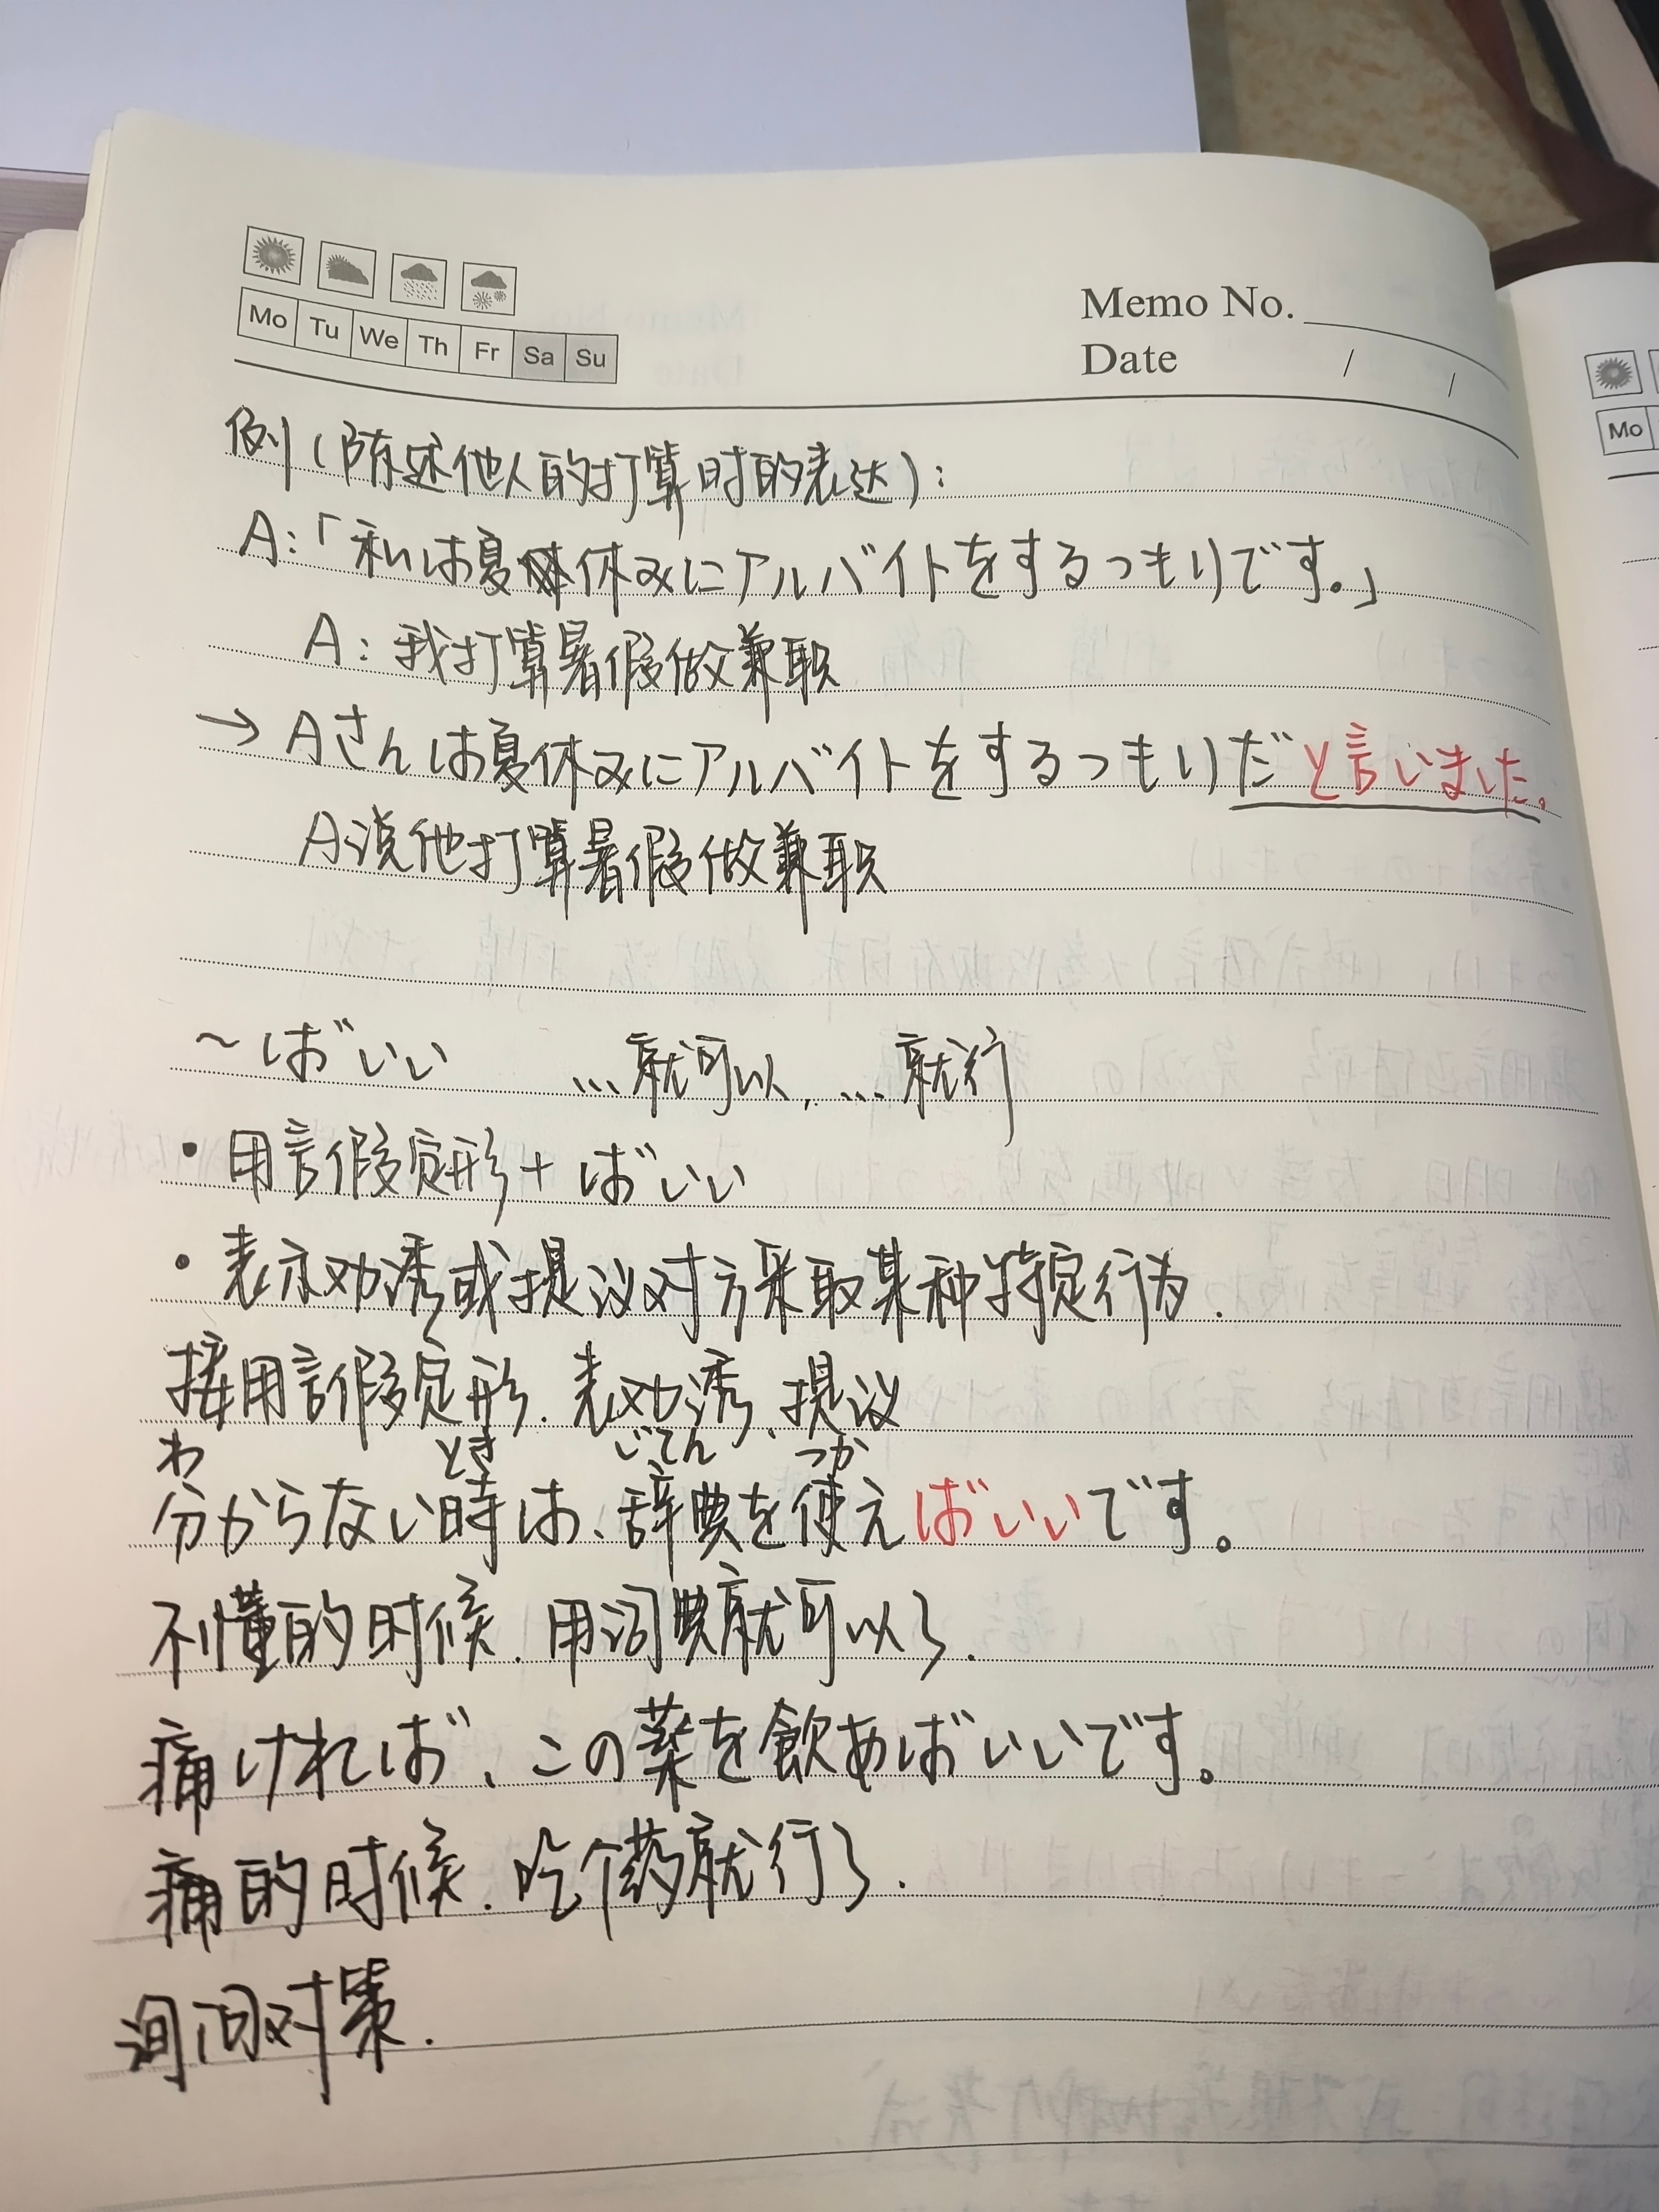 Mo Tu We Th Fr Sa Su
Memo No.
Date / /
Mo
例(陈述他人的打算时的表达):
A:「私は夏休みにアルバイトをするつもりです。」
A: 我打算暑假做兼职
→ Aさんは夏休みにアルバイトをするつもりだと言いました。
A说他打算暑假做兼职
~ばいい ...就可以, ...就行
·用言假定形+ばいい
·表示劝诱或提议对方采取某种特定行为.
接用言假定形.表劝诱、提议
わ とき じてん つか
分からない時は、辞典を使えばいいです。
不懂的时候.用词典就可以了.
痛ければ、この薬を飲めばいいです。
痛的时候.吃个药就行了.
询问对策.